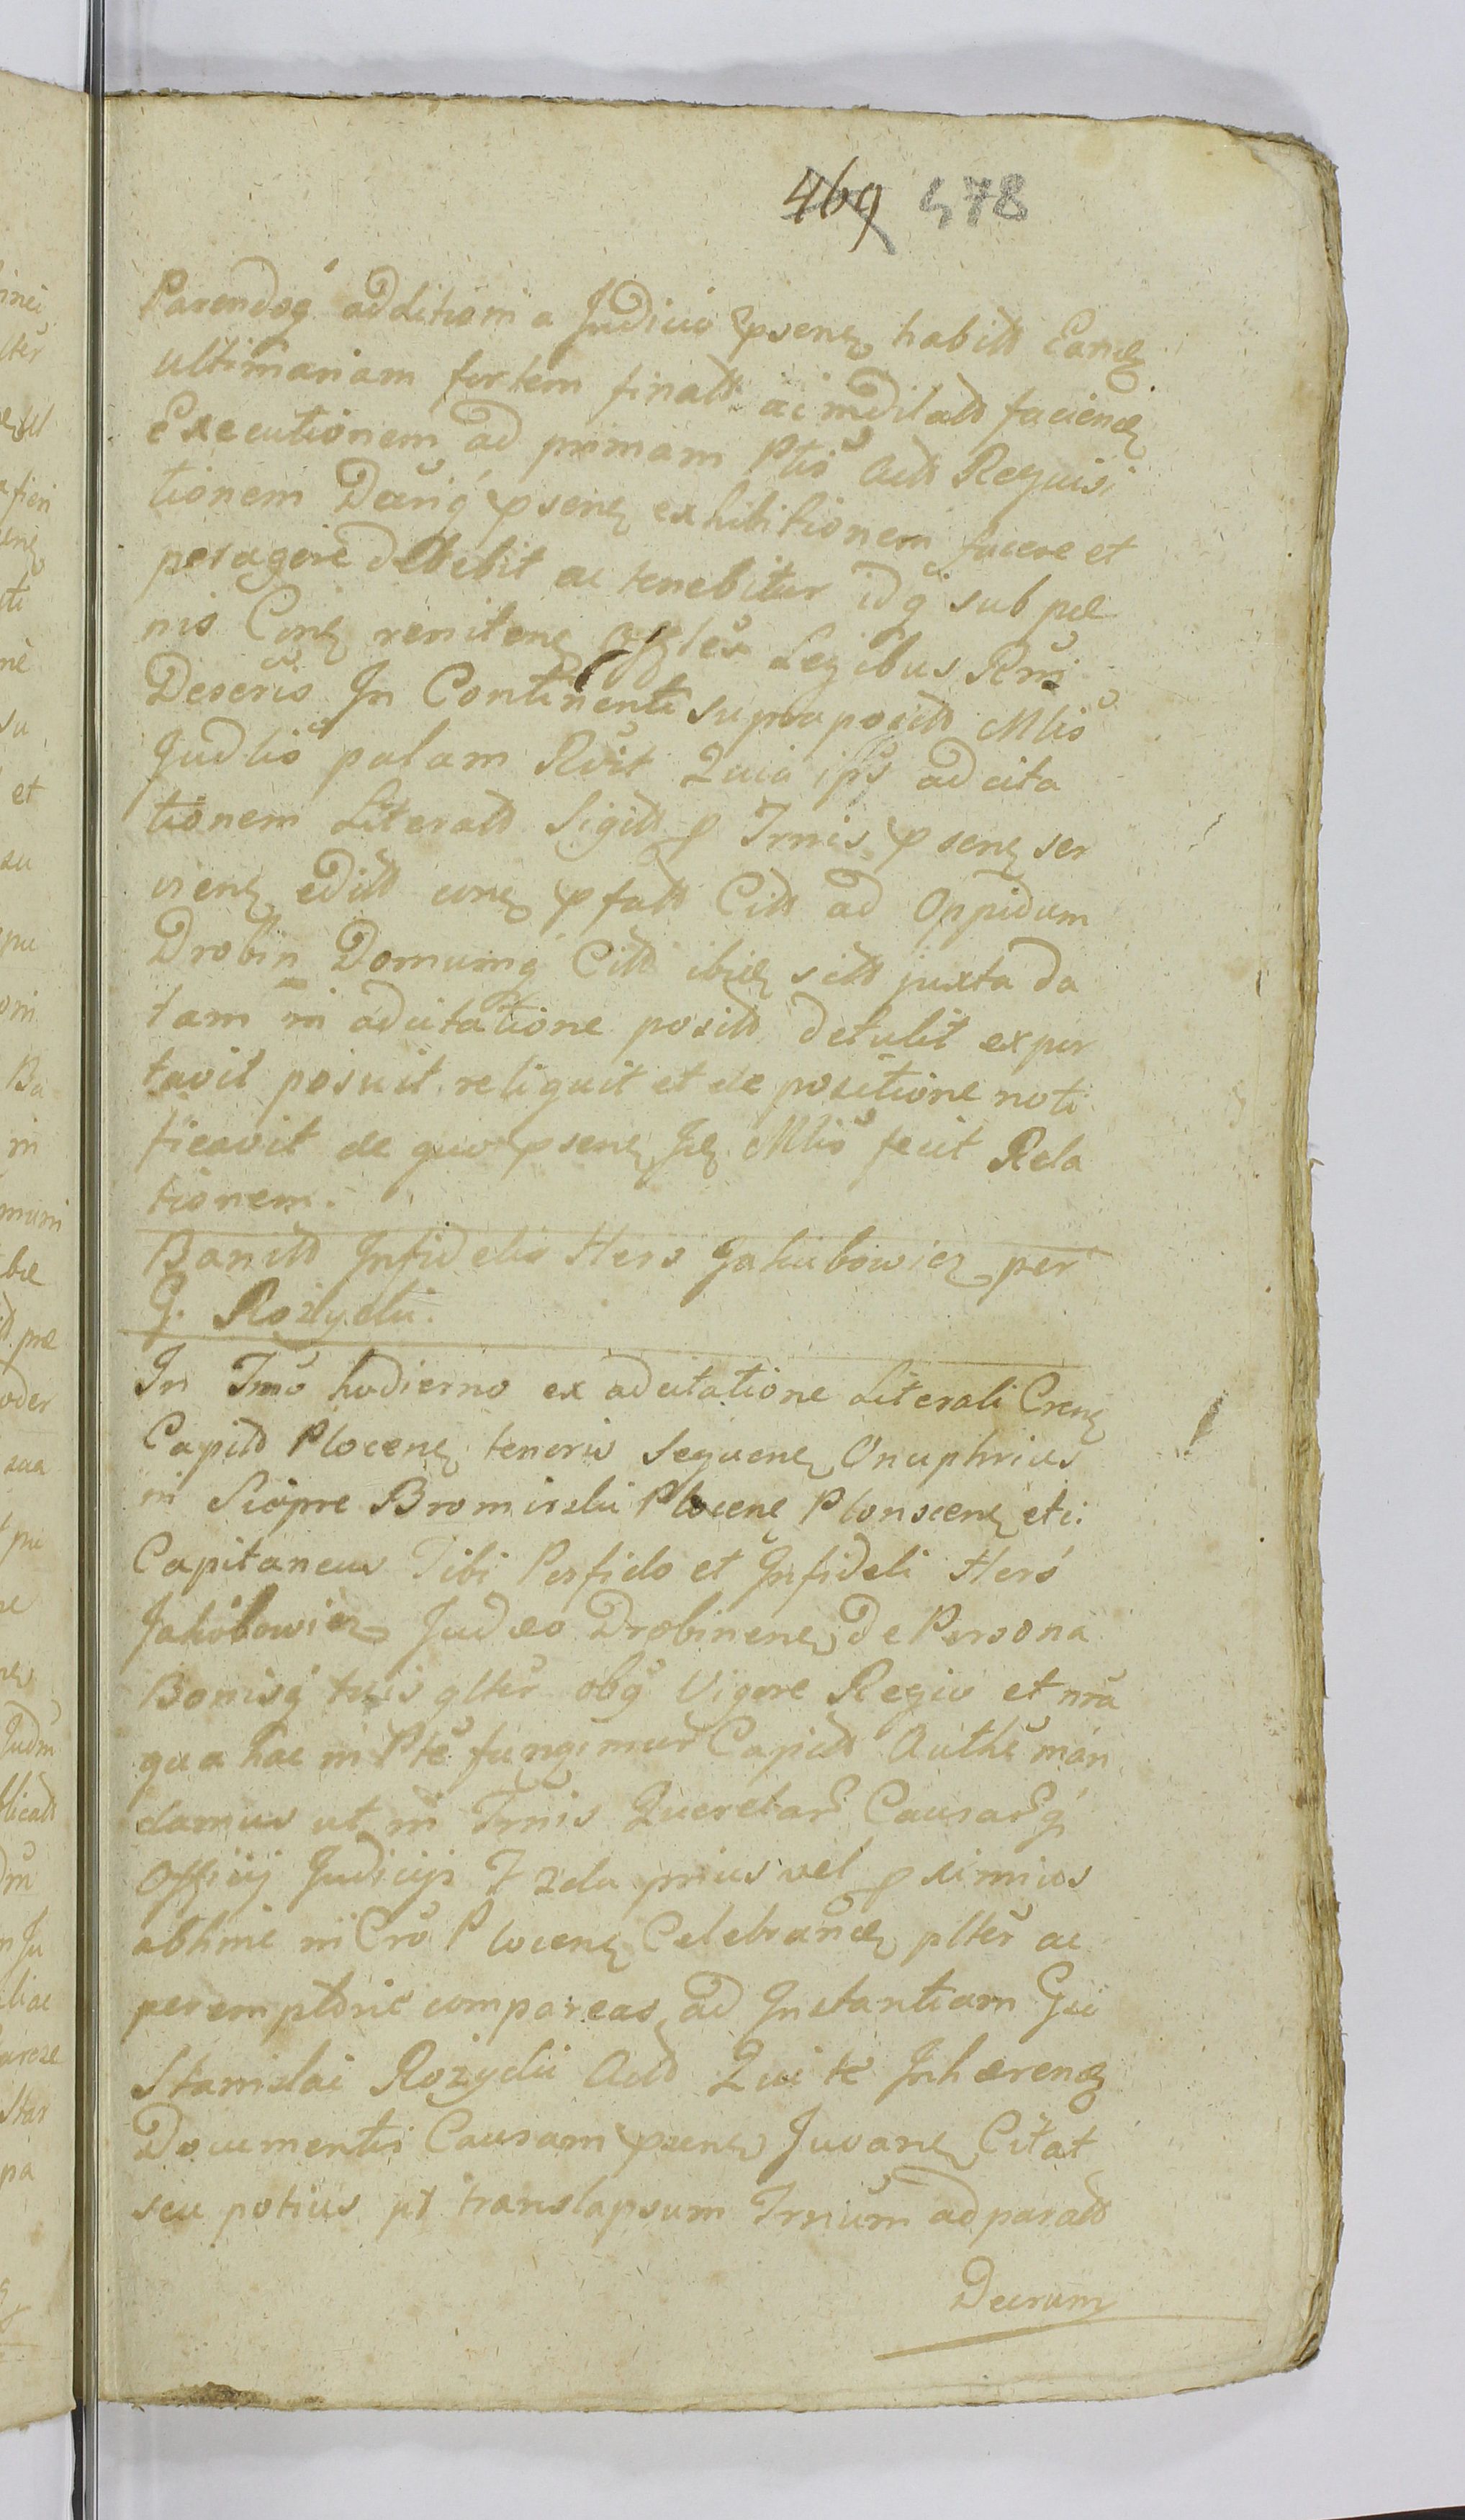 469 478
Parendoq́ additioni a Judicio psenꝫ habitt Eandꝫ
ultimariam fortem finalt ac meditatt faciendꝫ
Executionem ad primam Ptis Actt Requisi
tionem Decriq́ psenꝫ exhibitionem facere et
peragere debebit ac tenebitur idq́ sub pœ
nis Conꝫ renitenꝫ Legibus Rni
Descris In Continenti supra positt Mlis
Judlis palam Rdit Quia ips adcita
tionem Literatt Sigitt p Trnis psenꝫ ser
vienꝫ editt conꝫ pfatt Citt ad Oppidum
Drobin Domumq́ Citt ibidꝫ sitt juxta da
tam in adcitatione positt detulit expor
tavit posuit reliquit et de positione noti
ficavit de quo psenꝫ Idꝫ Mlis fecit Rela
tionem.
Banitt Infidelis Hers Jakubowicz per
G. Rozycki.
In Trno hodierno ex adcitatione Literali Crenꝫ
Capitt Plocenꝫ tenoris sequenꝫ Onuphrius
in Siopre Bromirski Plocenꝫ Plonscenꝫ etc:
Capitaneus Tibi Perfido et Infideli Hers
Jakobowicz Judæo Drobinenꝫ de Persona
Bonisq́ tuis glter obq́ Vigore Regio et nra
qua hac in Pte fungimur Capitt Authe man
damus ut in Trnis Querelar Causarq́
Officij Judicijs 7 zdu prius vel pximius
abhinc in Cro Plocenꝫ Celebrandꝫ plter ac
peremptorie compareas ad Instantiam Gsi
Stanislai Rozycki Actt Qui te Inhærendꝫ
Documentis Causam psenꝫ Juvanꝫ Citat
seu potius pt translapsum Trnum adparatt
Decrum